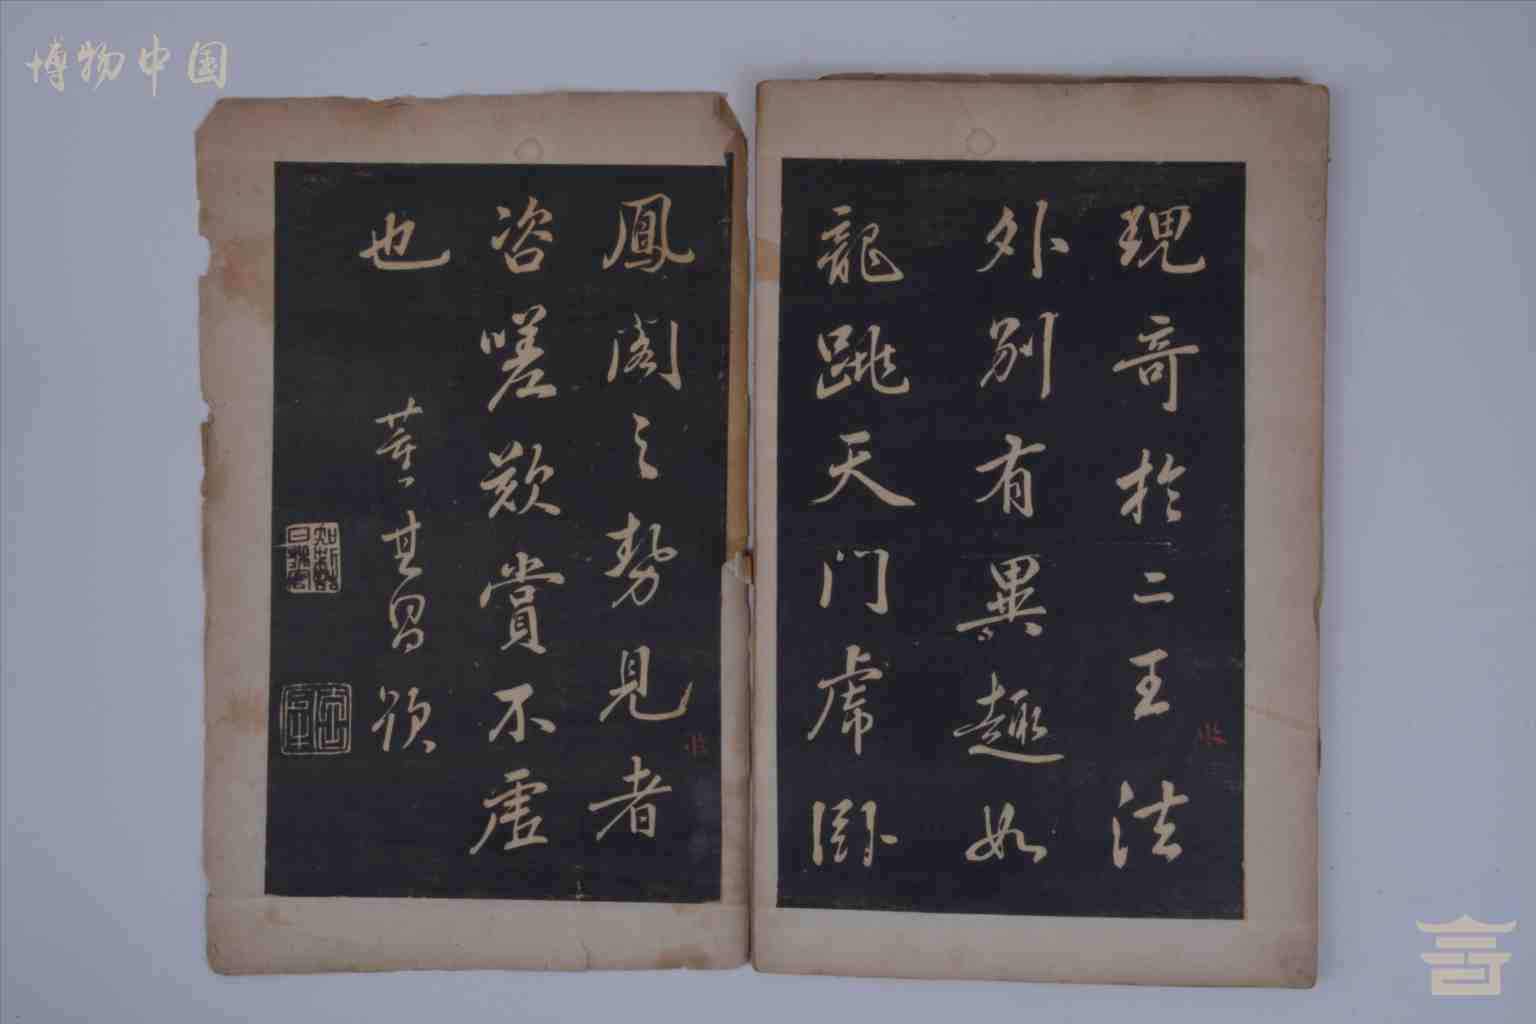 博物中国
現奇於二王法
外別有異趣如
龍跳天門虎卧
鳳閣之勢見者
咨嗟歎賞不虛
也
董其昌